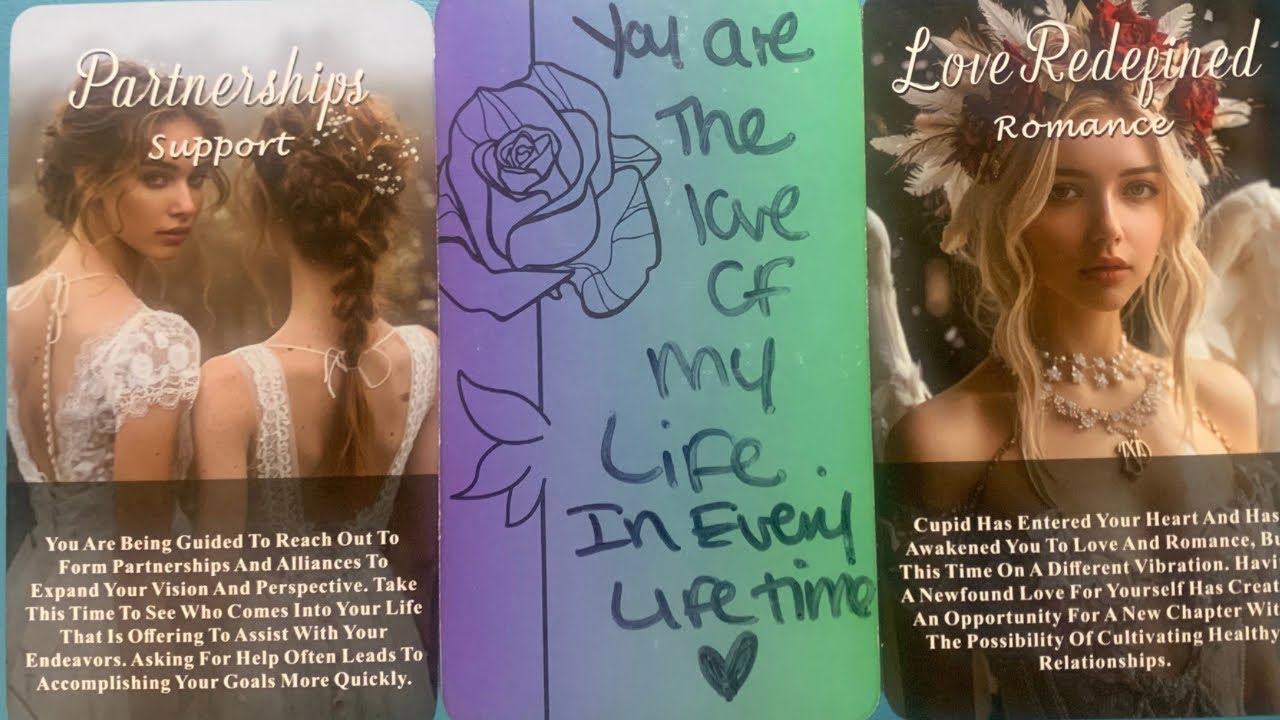 Partnerships
Support
You Are Being Guided To Reach Out To
Form Partnerships And Alliances To
Expand Your Vision And Perspective. Take
This Time To See Who Comes Into Your Life
That Is Offering To Assist With Your
Endeavors. Asking For Help Often Leads To
Accomplishing Your Goals More Quickly.
You are
The
love
Of
My
Life.
In Every
Lifetime
Love Redefined
Romance
Cupid Has Entered Your Heart And Has
Awakened You To Love And Romance, Bu
This Time On A Different Vibration. Havi
A Newfound Love For Yourself Has Creat
An Opportunity For A New Chapter Wit
The Possibility Of Cultivating Healthy
Relationships.